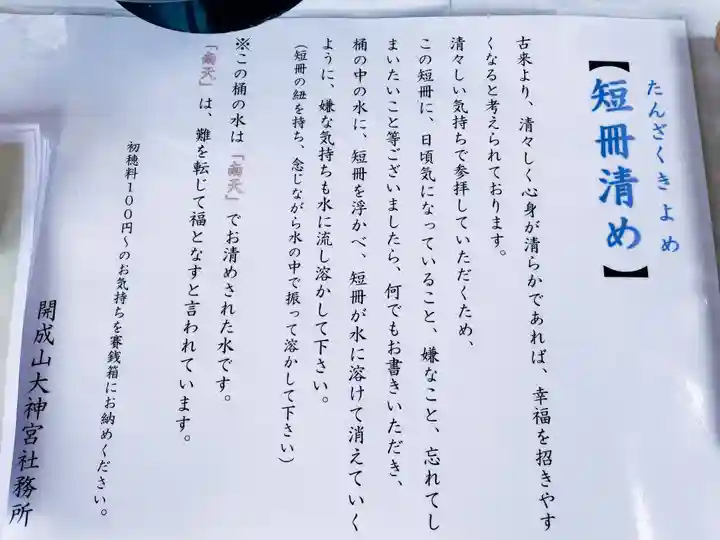 【短冊清め】
たんざくきよめ
古来より、清々しく心身が清らかであれば、幸福を招きやす
くなると考えられております。
清々しい気持ちで参拝していただくため、
この短冊に、日頃気になっていること、嫌なこと、忘れてし
まいたいこと等ございましたら、何でもお書きいただき、
桶の中の水に、短冊を浮かべ、短冊が水に溶けて消えていく
ように、嫌な気持ちも水に流し溶かして下さい。
(短冊の紐を持ち、念じながら水の中で振って溶かして下さい)
※この桶の水は「南天」でお清めされた水です。
「南天」は、難を転じて福となすと言われています。
初穂料100円~のお気持ちを賽銭箱にお納めください。
開成山大神宮社務所